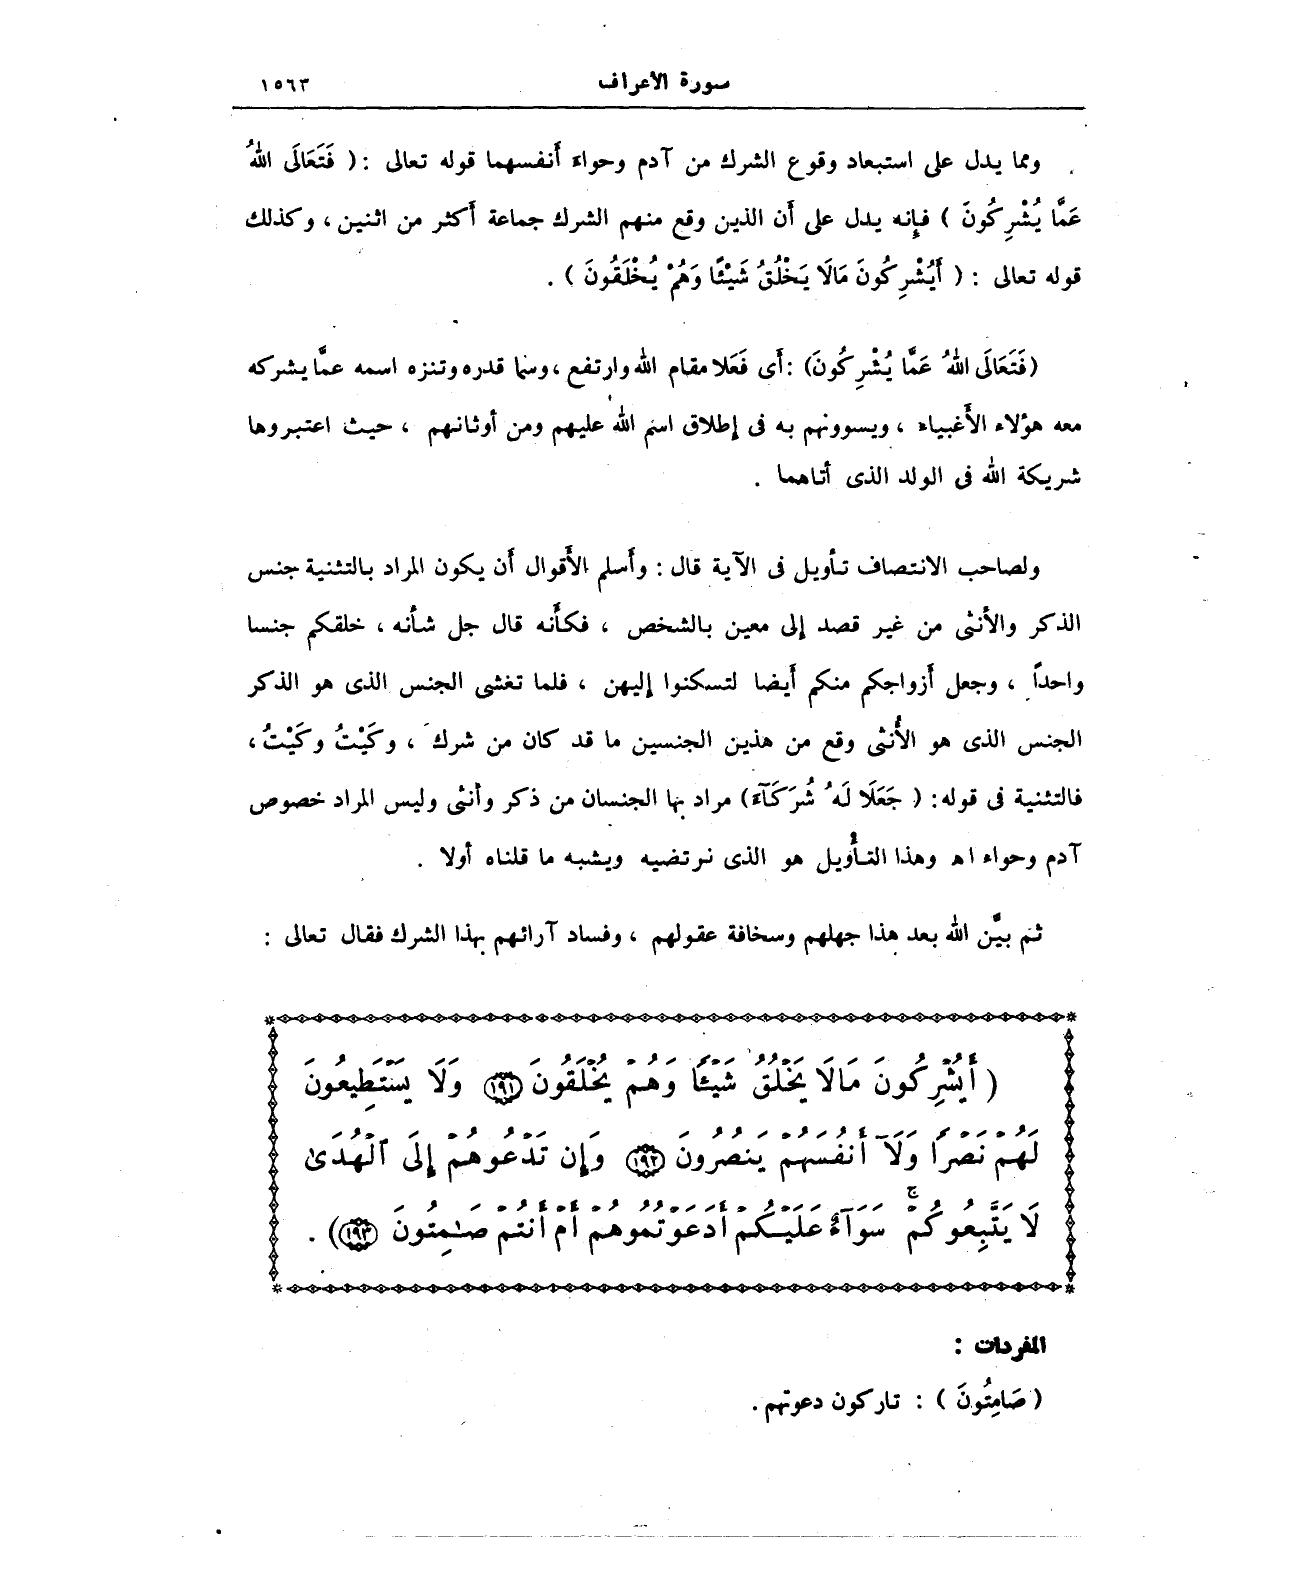 سورة الأعراف ١٥٦٣
ومما يدل على استبعاد وقوع الشرك من آدم وحواء أَنفسهما قوله تعالى : ( فَتَعَالَى اللهُ
عَمَّا يُشْرِكُونَ ) فإِنه يدل على أَن الذين وقع منهم الشرك جماعة أَكثر من اثنين ، وكذلك
قوله تعالى : ( أَيُشْرِكُونَ مَالَا يَخْلُقُ شَيْئًا وَهُمْ يُخْلَقُونَ ) .
(فَتَعَالَى اللهُ عَمَّا يُشْرِكُونَ) : أَى فَعَلا مقام الله وارتفع ، وسما قدره وتنزه اسمه عمَّا يشركه
معه هؤلاء الأَغبياء ، ويسوونهم به فى إطلاق اسم الله عليهم ومن أوثانهم ، حيث اعتبروها
شريكة الله فى الولد الذى أتاهما .
ولصاحب الانتصاف تأويل فى الآية قال : وأَسلم الأَقوال أَن يكون المراد بالتثنية جنس
الذكر والأنثى من غير قصد إلى معين بالشخص ، فكأَنه قال جل شأنه ، خلقكم جنسا
واحداً ، وجعل أَزواجكم منكم أَيضا لتسكنوا إليهن ، فلما تغشى الجنس الذى هو الذكر
الجنس الذى هو الأُنثى وقع من هذين الجنسين ما قد كان من شرك ، وكَيْتُ وكَيْتُ ،
فالتثنية فى قوله : ( جَعَلَا لَهُ شُرَكَآءَ) مراد بها الجنسان من ذكر وأنثى وليس المراد خصوص
آدم وحواء اه وهذا التأويل هو الذى نرتضيه ويشبه ما قلناه أولا .
ثم بيَّن الله بعد هذا جهلهم وسخافة عقولهم ، وفساد آرائهم بهذا الشرك فقال تعالى :
( أَيُشْرِكُونَ مَالَا يَخْلُقُ شَيْئًا وَهُمْ يُخْلَقُونَ ١٩١ وَلَا يَسْتَطِيعُونَ
لَهُمْ نَصْرًا وَلَآ أَنفُسَهُمْ يَنصُرُونَ ١٩٢ وَإِن تَدْعُوهُمْ إِلَى ٱلْهُدَىٰ
لَا يَتَّبِعُوكُمْ ۚ سَوَآءٌ عَلَيْكُمْ أَدَعَوْتُمُوهُمْ أَمْ أَنتُمْ صَـٰمِتُونَ ١٩٣) .
المفردات :
( صَامِتُونَ ) : تاركون دعوتهم .